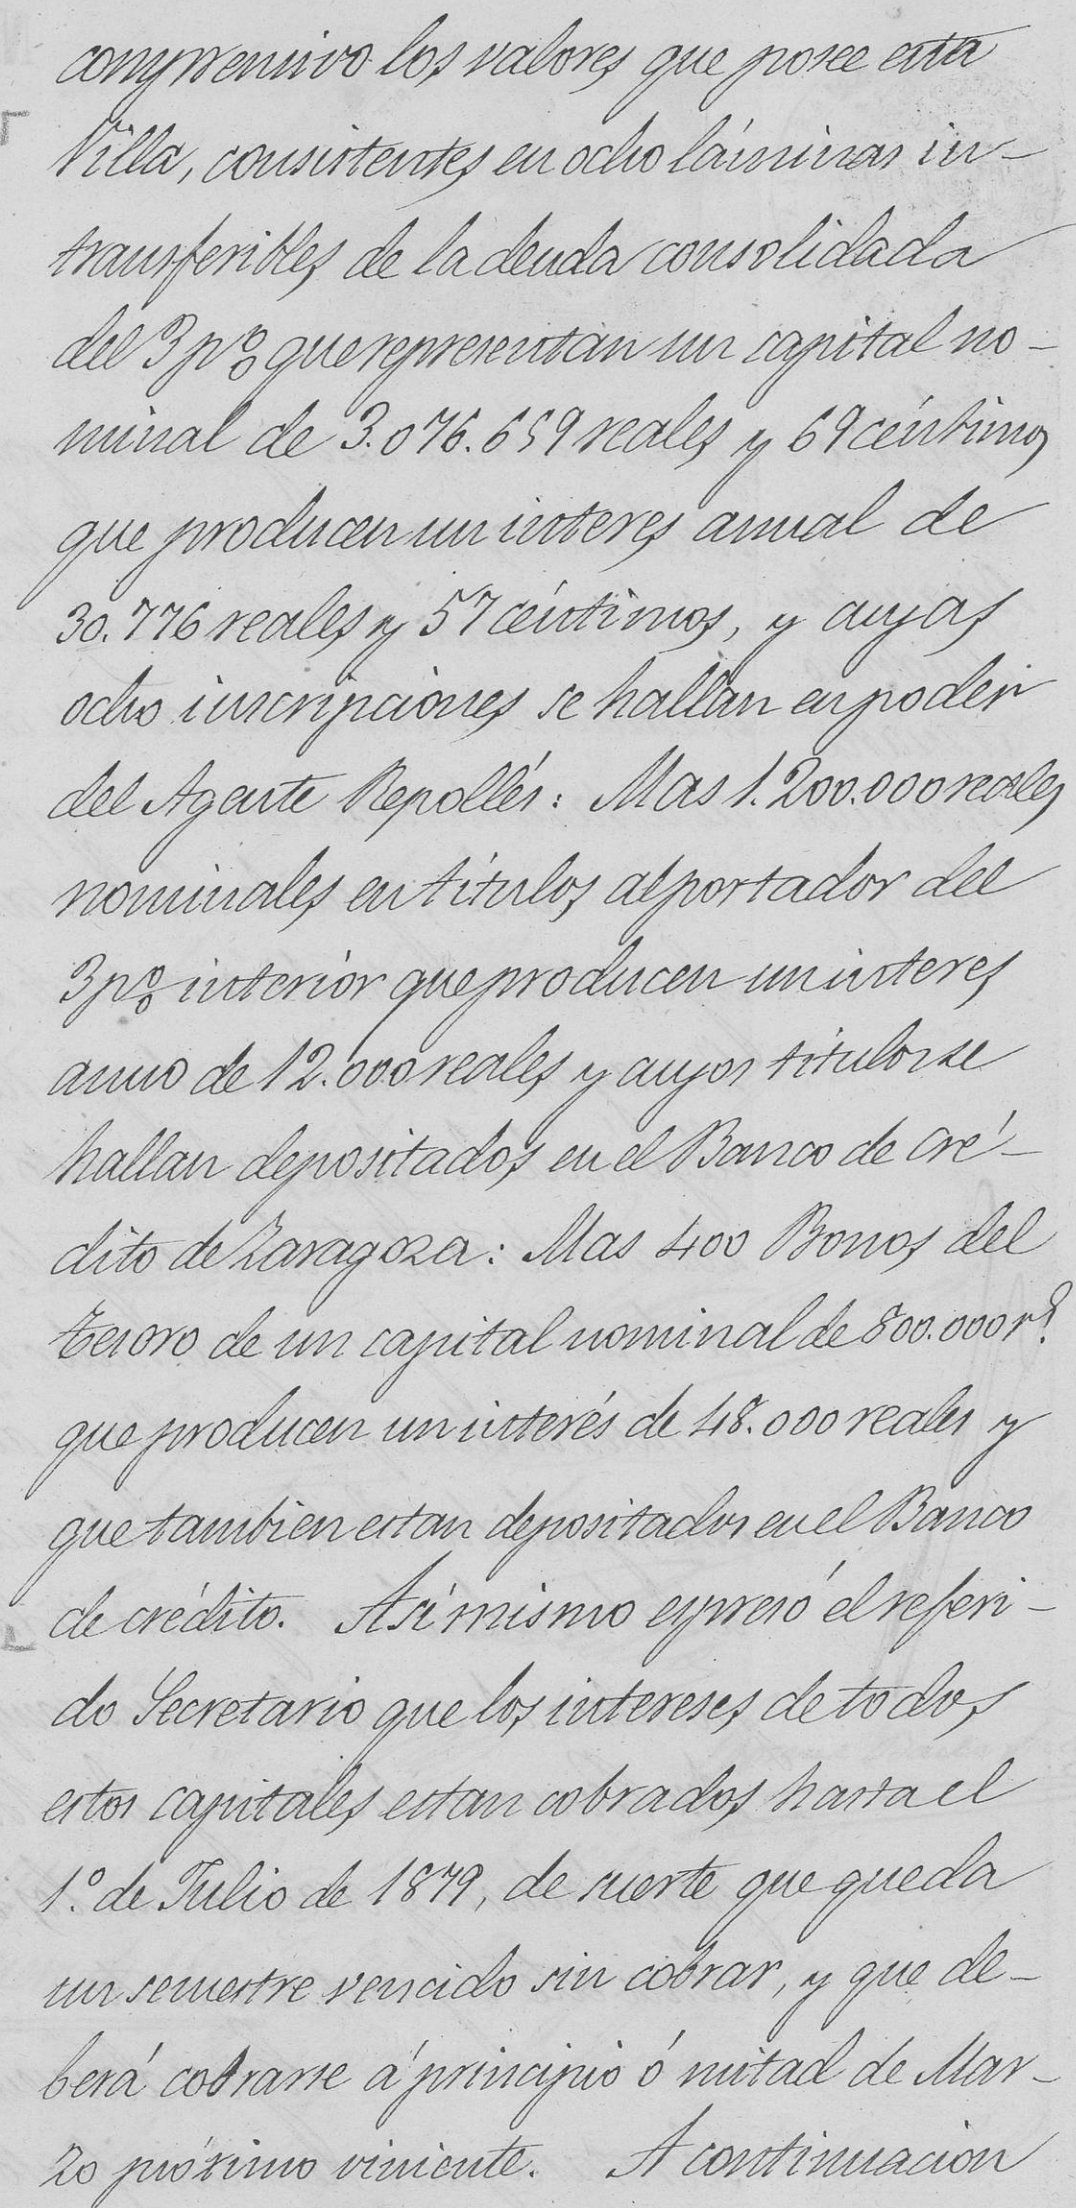 compremivo los valores que posee esta
Villa, consistentes en ocho láminas in-
transferibles de la deuda consolidada
del 3 p% que representan un capital no-
minal de 3.076.659 reales y 69 céntimos
que producen un interes anual de
30.776 reales y 57 céntimos, y cuyas
ocho inscripciones se hallan en poder
del Agente Repollés: Mas 1.200.000 reales
nominales en títulos al portador del
3 p% interior que producen un interes
anuo de 12.000 reales y cuyos titulos se
hallan depositados en el Banco de cré-
dito de Zaragoza: Mas 400 Bonos del
tesoro de un capital nominal de 800.000 rs.
que producen un interés de 48.000 reales y
que tambien estan depositados en el Banco
de crédito. Asi mismo espresó el referi-
do Secretario que los intereses de todos
estos capitales estan cobrados hasta el
1.º de Julio de 1879, de suerte que queda
un semestre vencido sin cobrar, y que de-
berá cobrarse á principio ó mitad de Mar-
zo próximo viniente. A continuacion